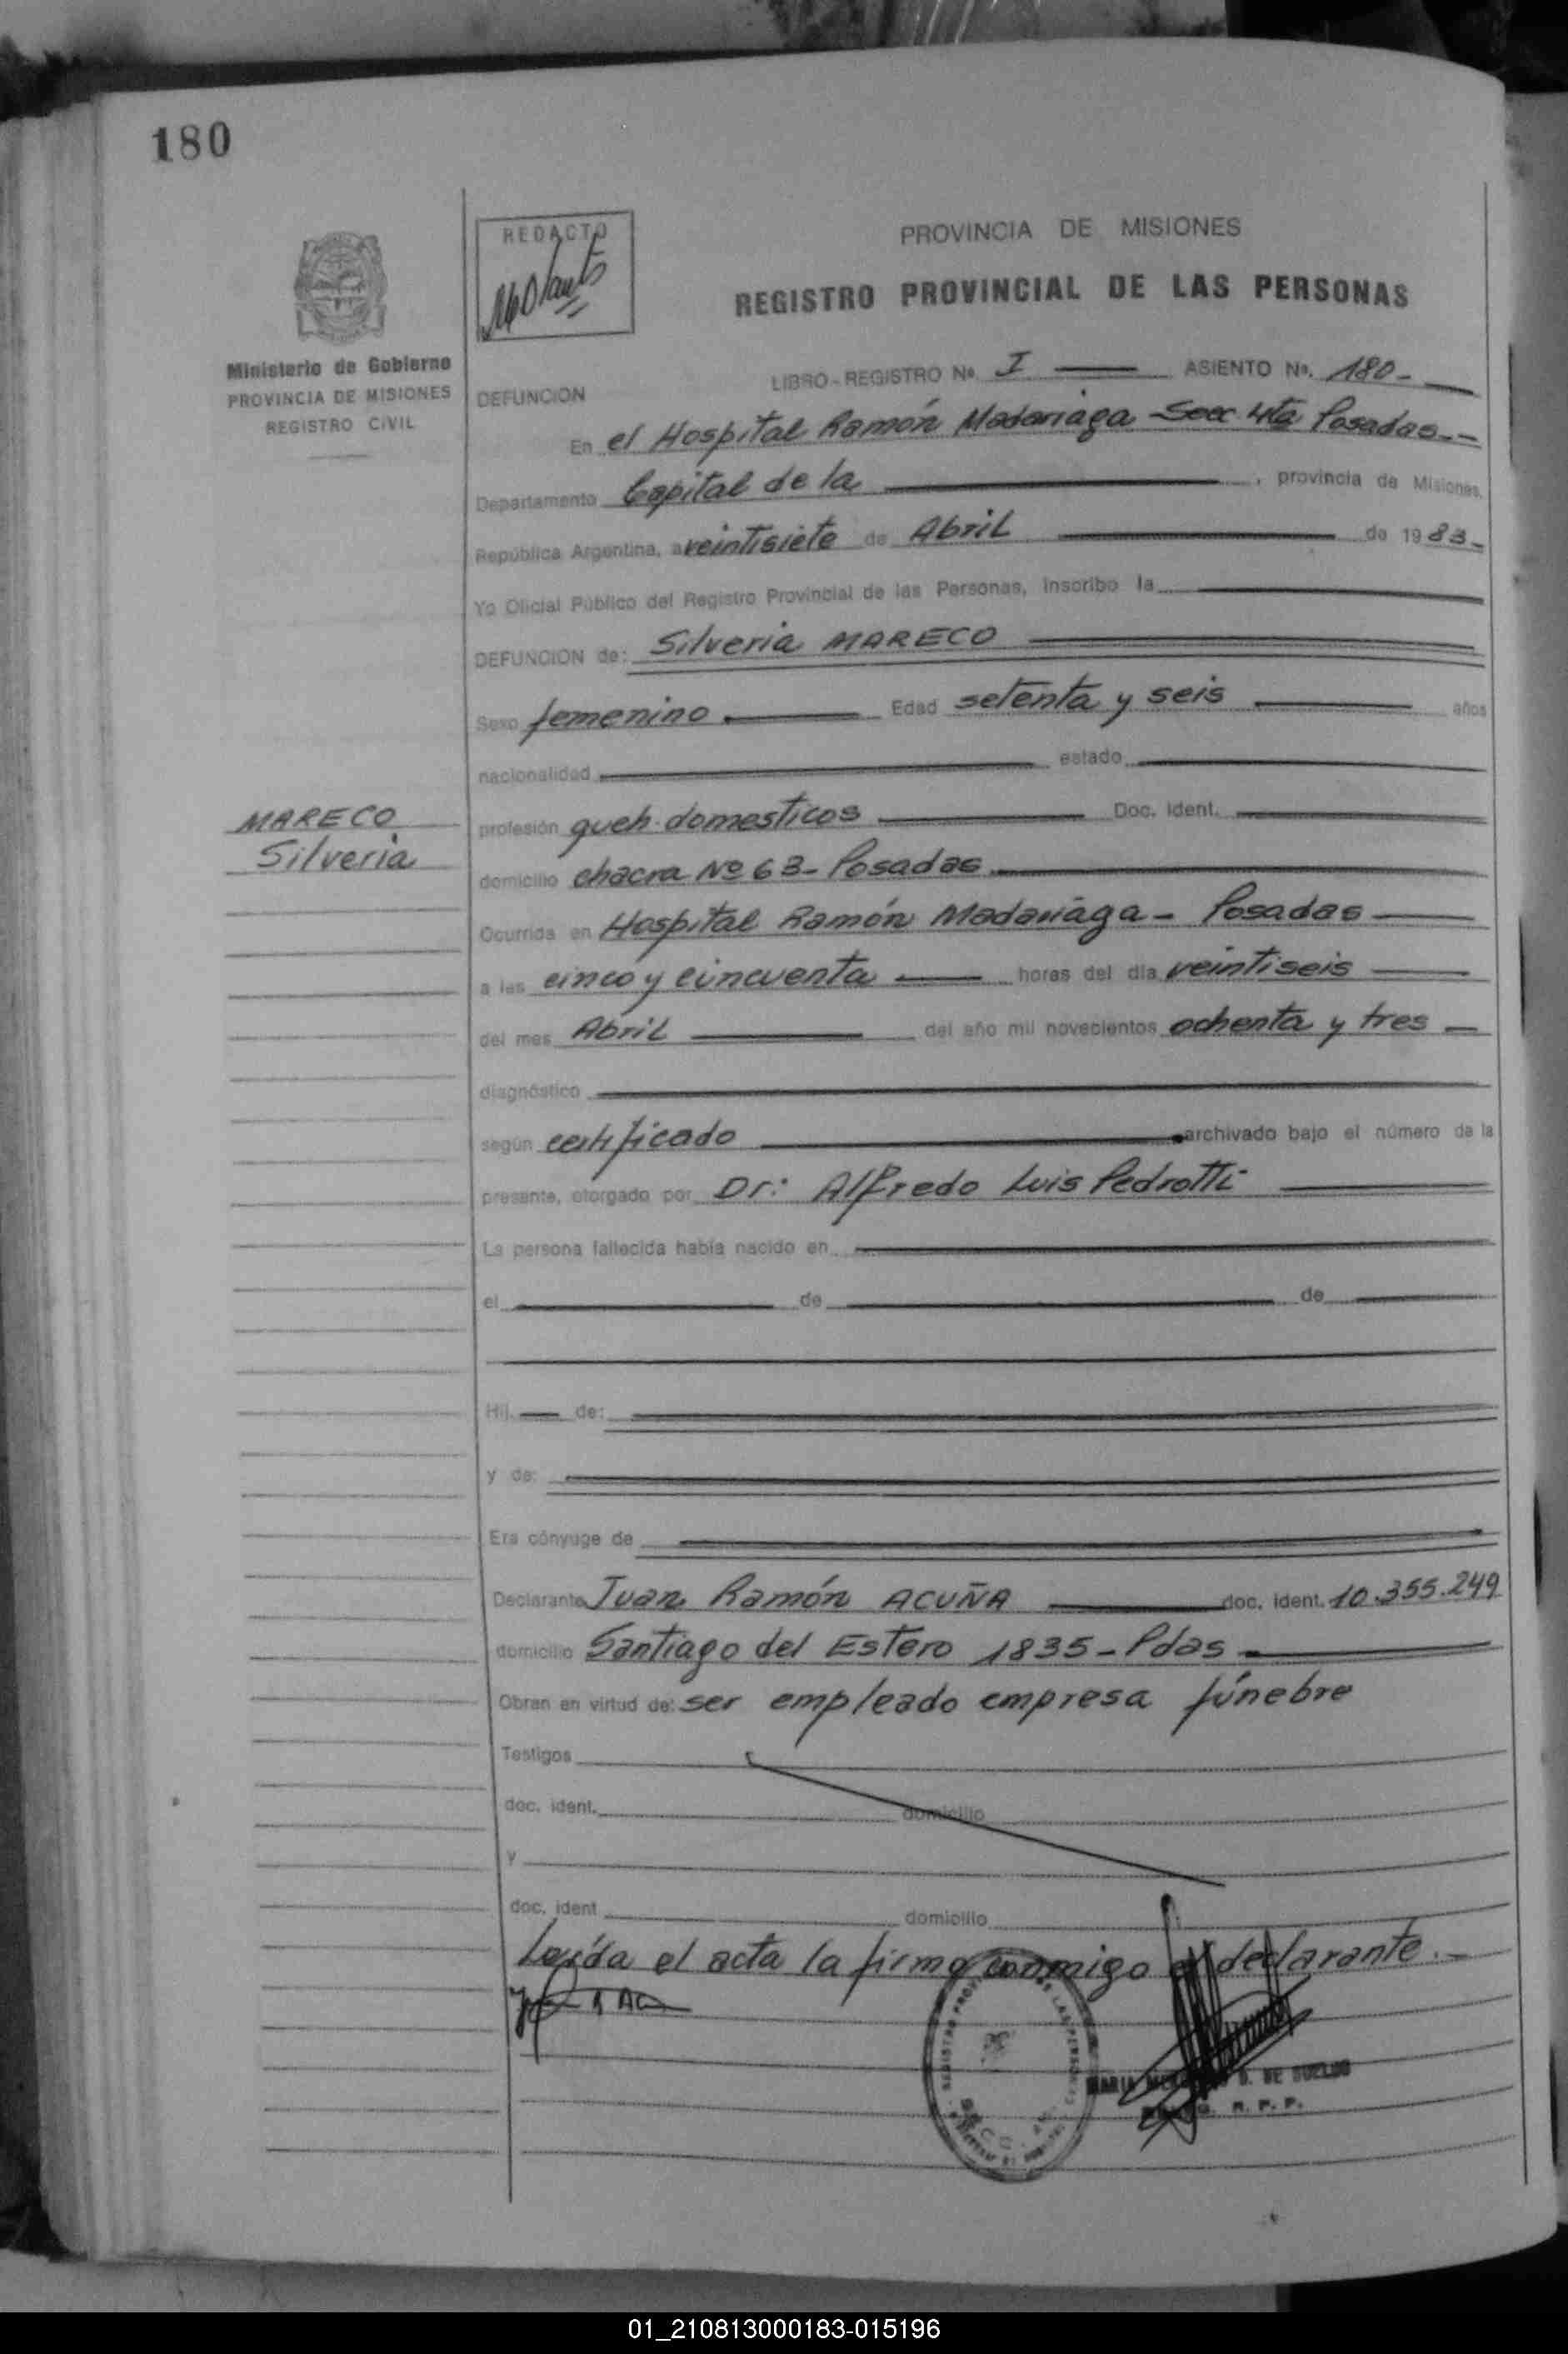 180
REDACTO
PROVINCIA DE MISIONES
REGISTRO PROVINCIAL DE LAS PERSONAS
Ministerio de Gobierno
PROVINCIA DE MISIONES
REGISTRO CIVIL
DEFUNCION
LIBRO - REGISTRO Nº. I ASIENTO Nº. 180-
En el Hospital Ramón Madariaga - Secc 4ta Posadas.-
Departamento Capital de la , provincia de Misiones,
República Argentina, a veintisiete de Abril de 1983-
Yo Oficial Público del Registro Provincial de las Personas, inscribo la
DEFUNCION de: Silveria MARECO
Sexo femenino Edad setenta y seis años
nacionalidad estado
MARECO
Silveria
profesión queh. domesticos Doc. Ident.
domicilio chacra Nº 63- Posadas
Ocurrida en Hospital Ramón Madariaga - Posadas
a las cinco y cincuenta horas del día veintiseis
del mes Abril del año mil novecientos ochenta y tres
diagnóstico
según certificado archivado bajo el número de la
presente, otorgado por Dr: Alfredo Luis Pedrotti
La persona fallecida había nacido en
el de de
Hij de:
y de:
Era cónyuge de
Declarante Juan Ramón ACUÑA doc. ident. 10.355.249
domicilio Santiago del Estero 1835- Pdas
Obran en virtud de: ser empleado empresa fúnebre
Testigos
doc. ident. domicilio
y
doc. ident domicilio
Leída el acta la firma conmigo el declarante.-
MARIA D. DE SUELDO
R. P. P.
01_210813000183-015196